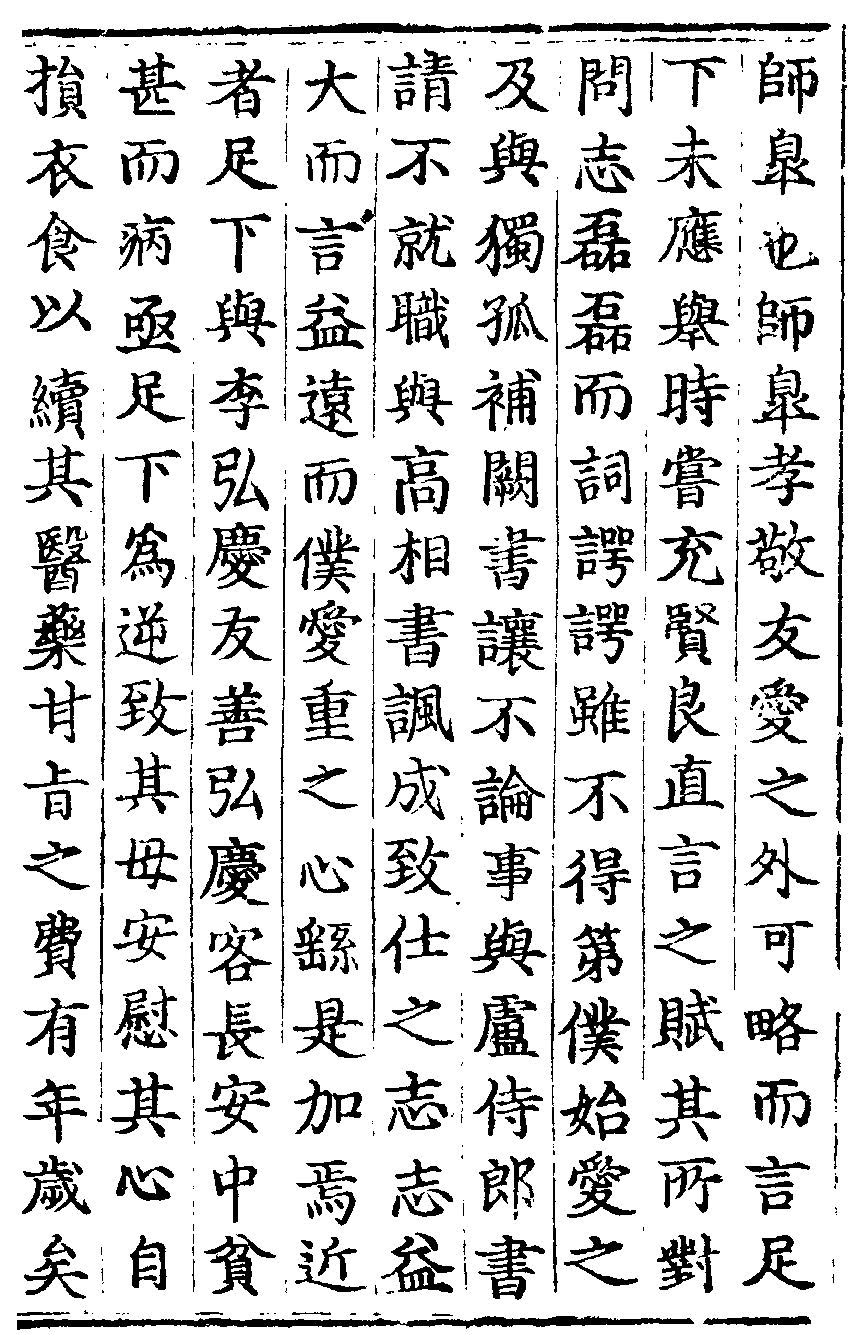 師臯也師臯孝敬友愛之外可略而言足
下未應舉時嘗充賢良直言之賦其所對
問志磊磊而詞諤諤雖不得第僕始愛之
及與獨孤補闕書讓不論事與盧侍郎書
請不就職與高相書諷成致仕之志志益
大而言益遠而僕愛重之心繇是加焉近
者足下與李弘慶友善弘慶客長安中貧
甚而病亟足下為逆致其母安慰其心自
損衣食以續其醫藥甘旨之費有年歲矣